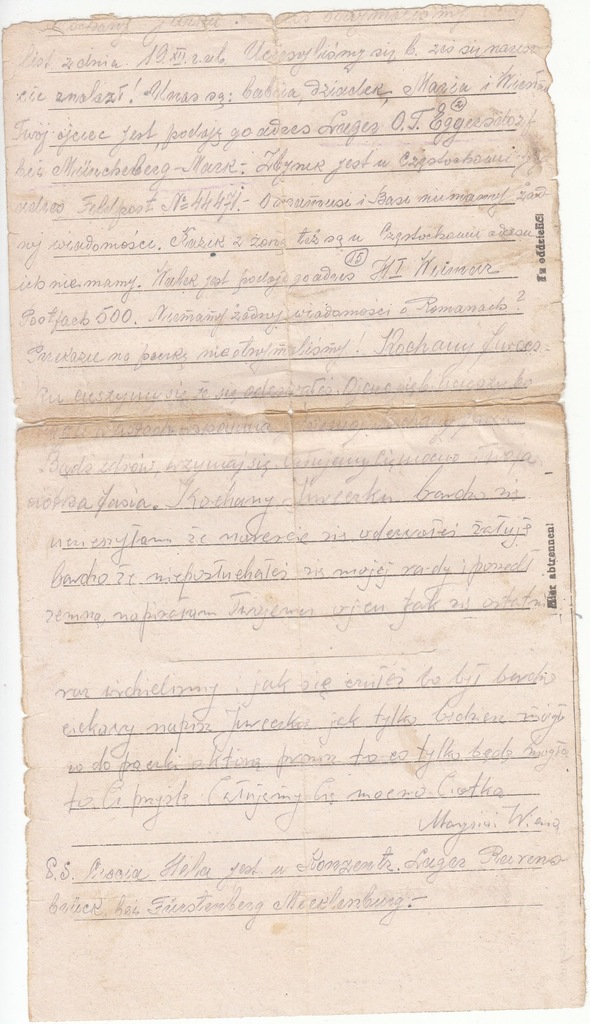 Kochany Jurku! otrzymaliśmy
list z dnia 19.XII.r.ub. Ucieszyliśmy się b. żeś się naresz-
cie znalazł! U nas są: babcia, dziadek, Marzia i Wiesia
Twój ojciec jest podaję go adres Lager O.T. Eggersdorf
bei Müncheberg-Mark- Zbynek jest w Częstochowie
adres Feldpost № 444 - O i Basi niemamy żad-
nej wiadomości. Kazik z żoną też są w Częstochowie adresu
ich nie mamy. Walek jest podaję go adres (15) Weimar
Postfach 500. Niemamy żadnej wiadomości o Romanach?
na paczkę nie otrzymaliśmy! Kochany Jurecz-
ku cieszymy się że się odezwałeś. Ojciec
w listach wspomina
Bądź zdrów, trzymaj się. Całujemy Cię mocno Twoja
ciotka Jasia. Kochany Jureczku bardzo się
ucieszyłam że nareszcie się odezwałeś żałuję
bardzo że nieposłuchałeś się mojej rady i poszedł
zemną, napisałam Twojemu ojcu jak się ostatni
raz widzieliśmy i jak się czułeś bo był bardzo
ciekawy napisz Jureczku jak tylko będziesz mógł
to do paczki a którą to co tylko będę mogła
to Ci przyślę Całujemy Cię mocno Ciotka
Marysia i Wiesia
P.S. Ciocia Hela jest w Konzentr. Lager Ravens-
brück bei Fürstenberg Mecklenburg.-
Tu oddzielić!
Hier abtrennen!